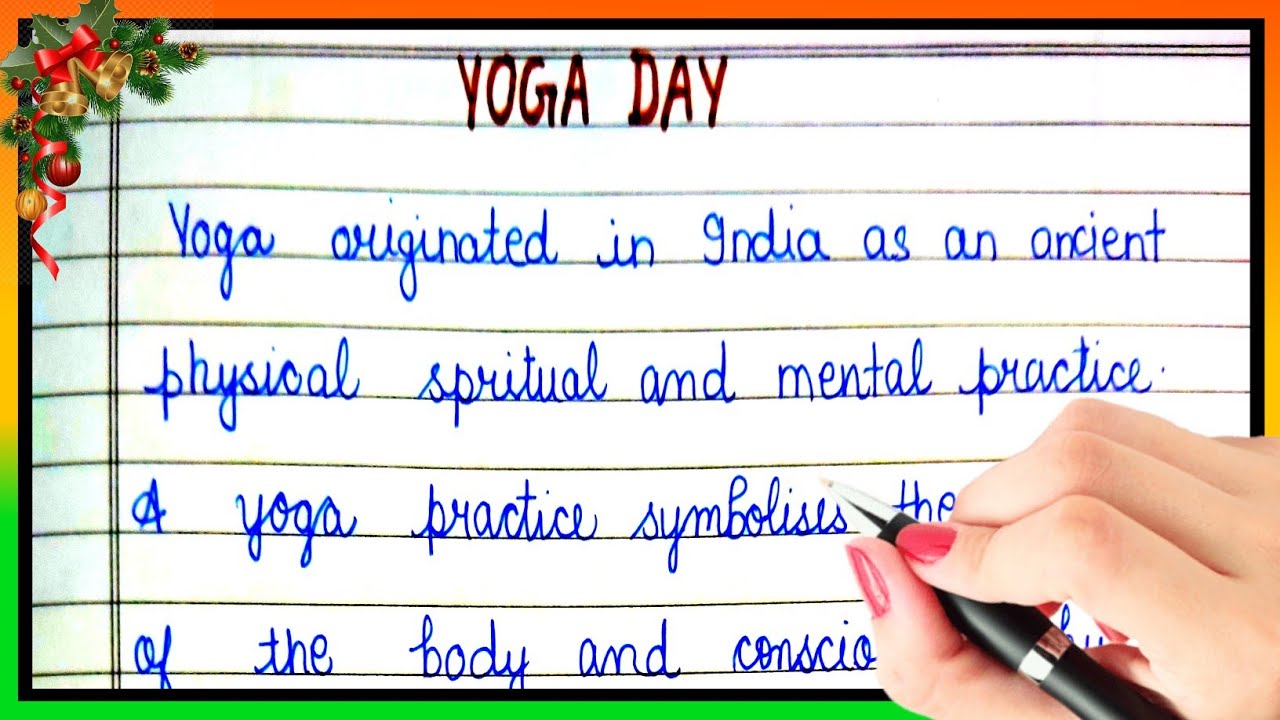 YOGA DAY
Yoga originated in India as an ancient
physical spritual and mental practice.
A yoga practice symbolises the
of the body and